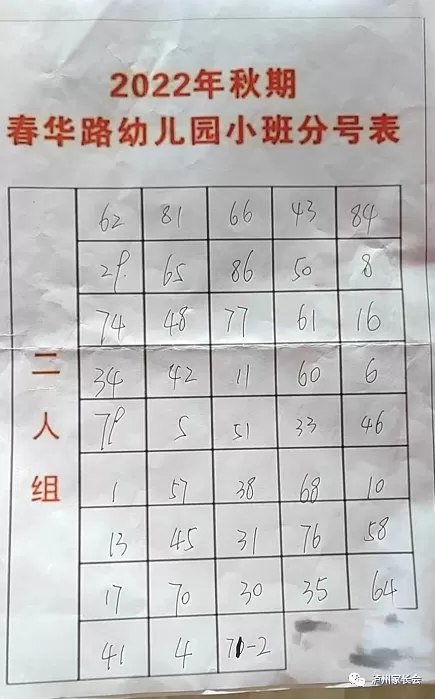 2022年秋期
春华路幼儿园小班分号表
二人组
62 81 66 43 84
29 65 86 50 8
74 48 77 61 16
34 42 11 60 6
79 5 51 33 46
1 57 38 68 10
13 45 31 76 58
17 70 30 35 64
41 4 71-2
泸州家长会